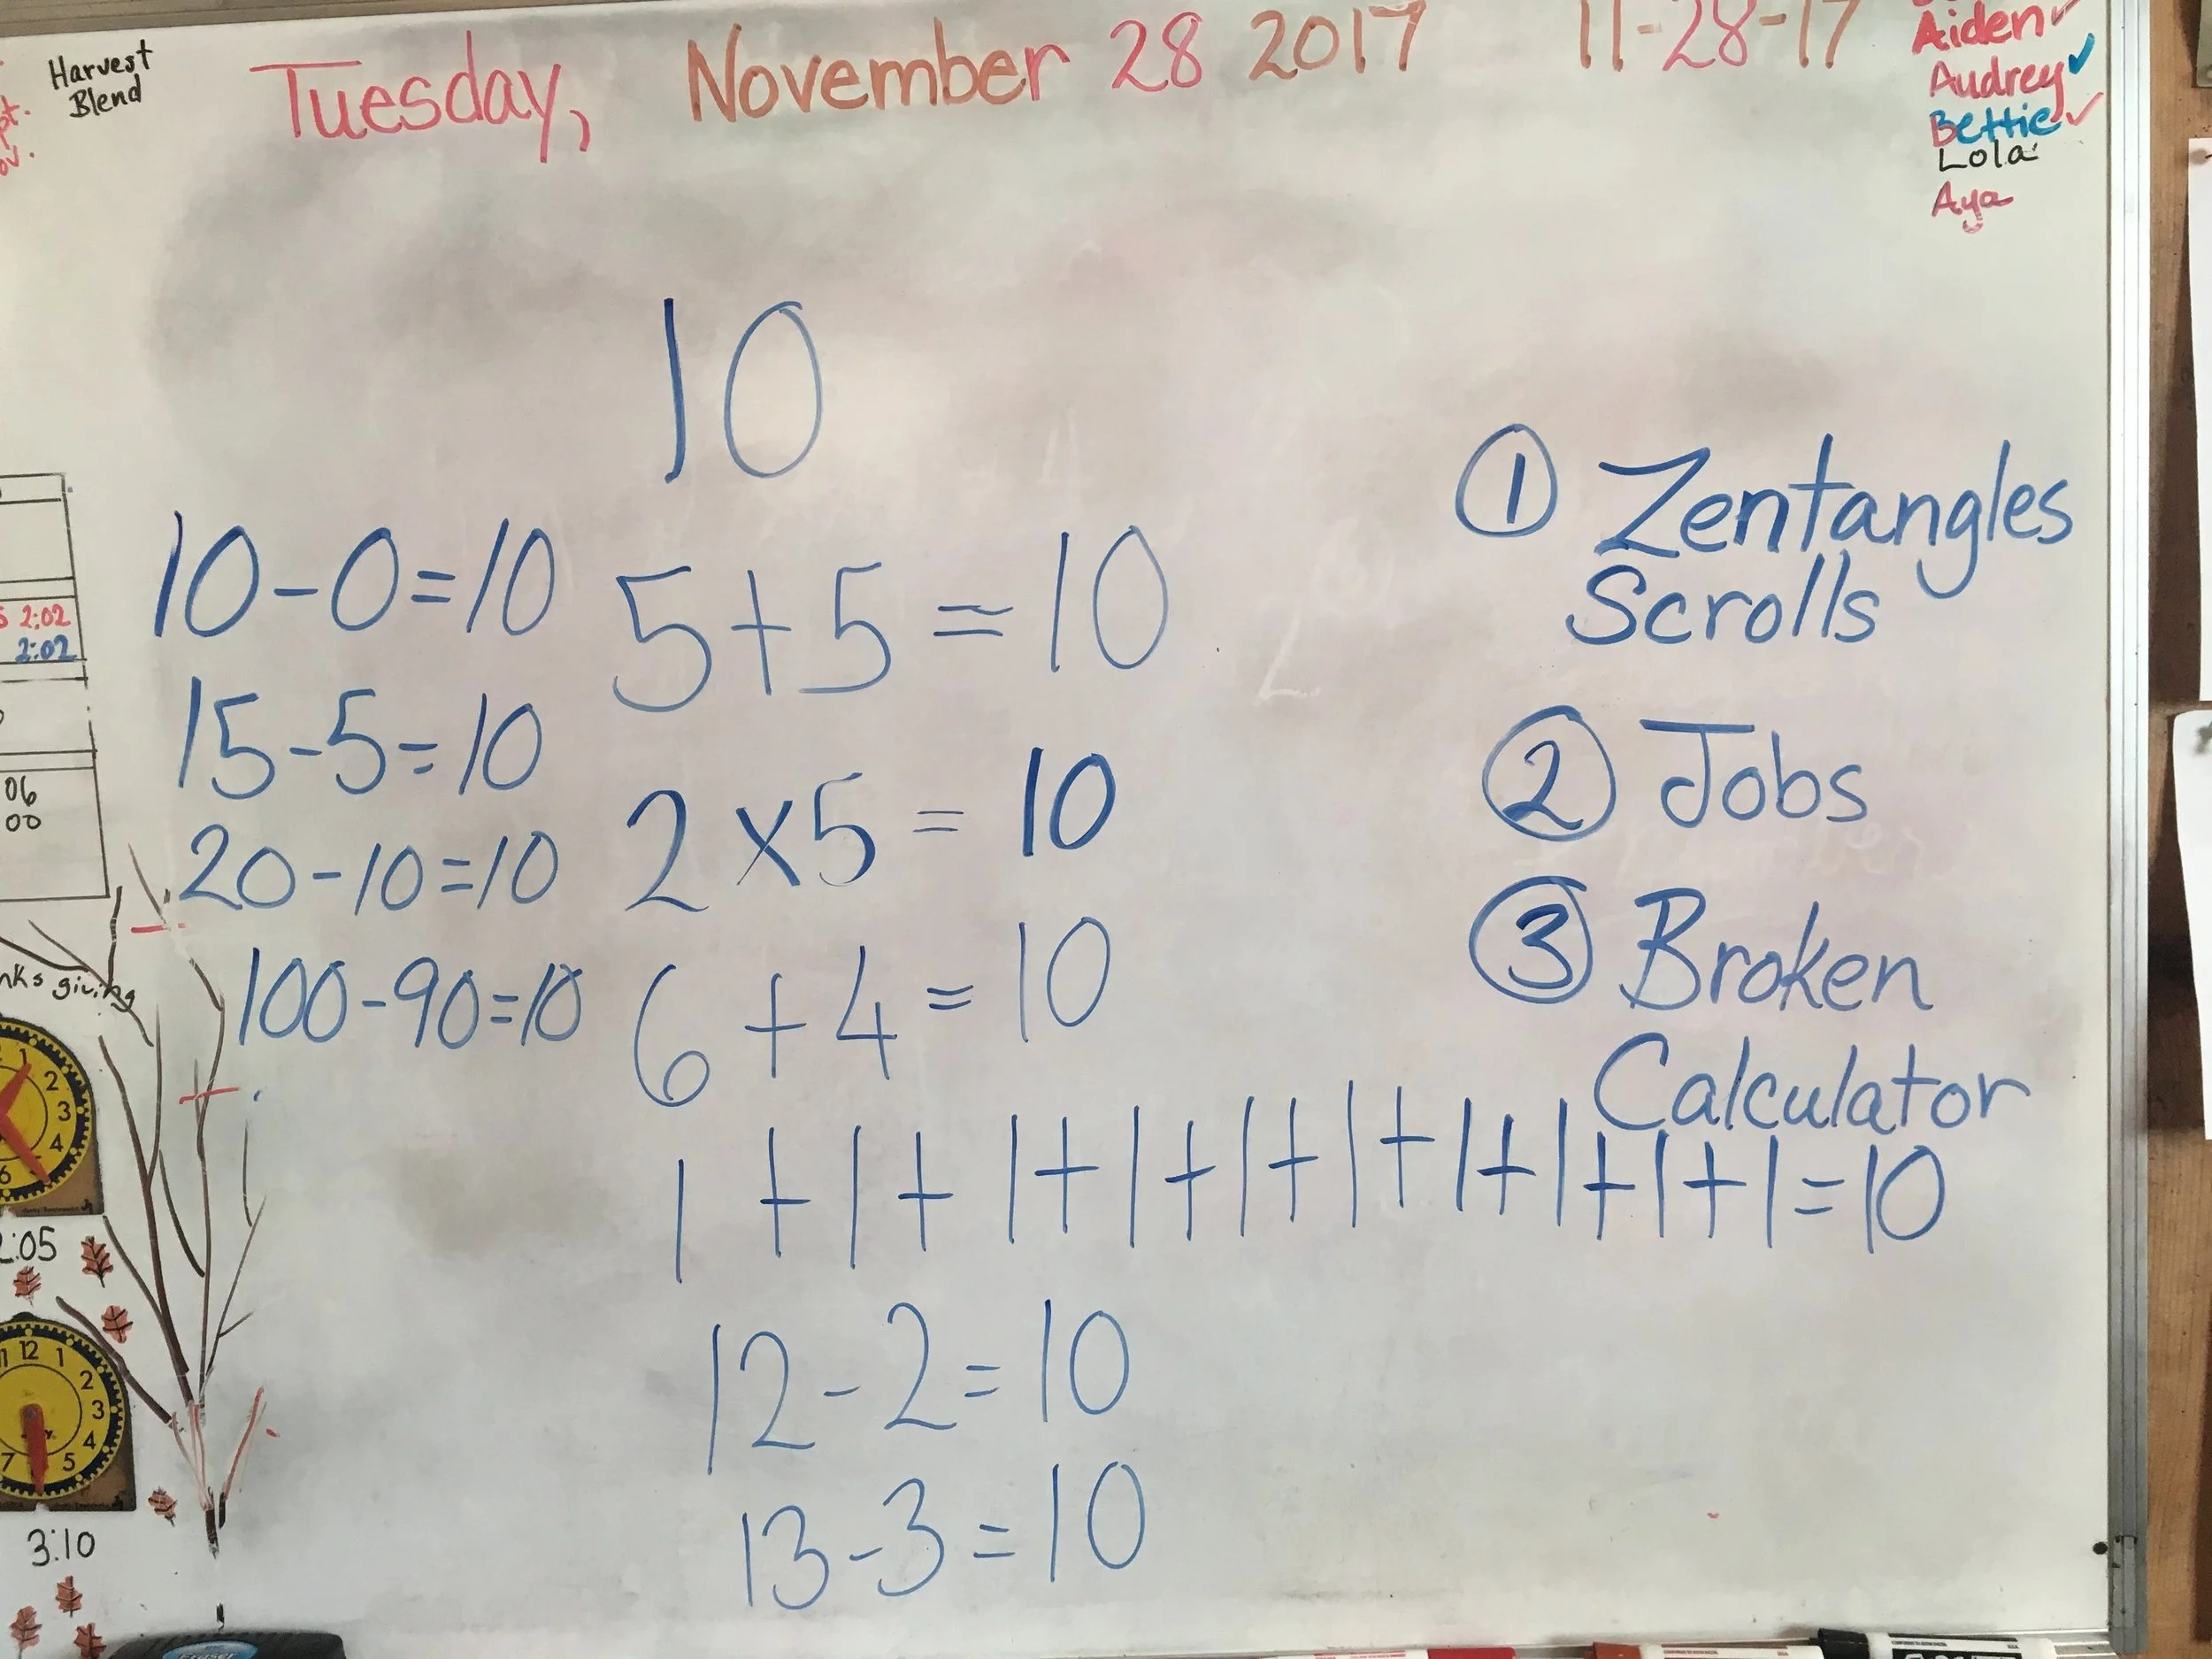 Harvest
Blend
Tuesday, November 28 2017 11-28-17
Aiden
Audrey
Bettie
Lola
Aya
10
10-0=10
15-5=10
20-10=10
100-90=10
5+5=10
2x5=10
6+4=10
1+1+1+1+1+1+1+1+1+1=10
12-2=10
13-3=10
① Zentangles
Scrolls
② Jobs
③ Broken
Calculator
2:02
2:02
06
00
giving
1
2
3
4
6
:05
12 1
2
3
4
5
7
3:10